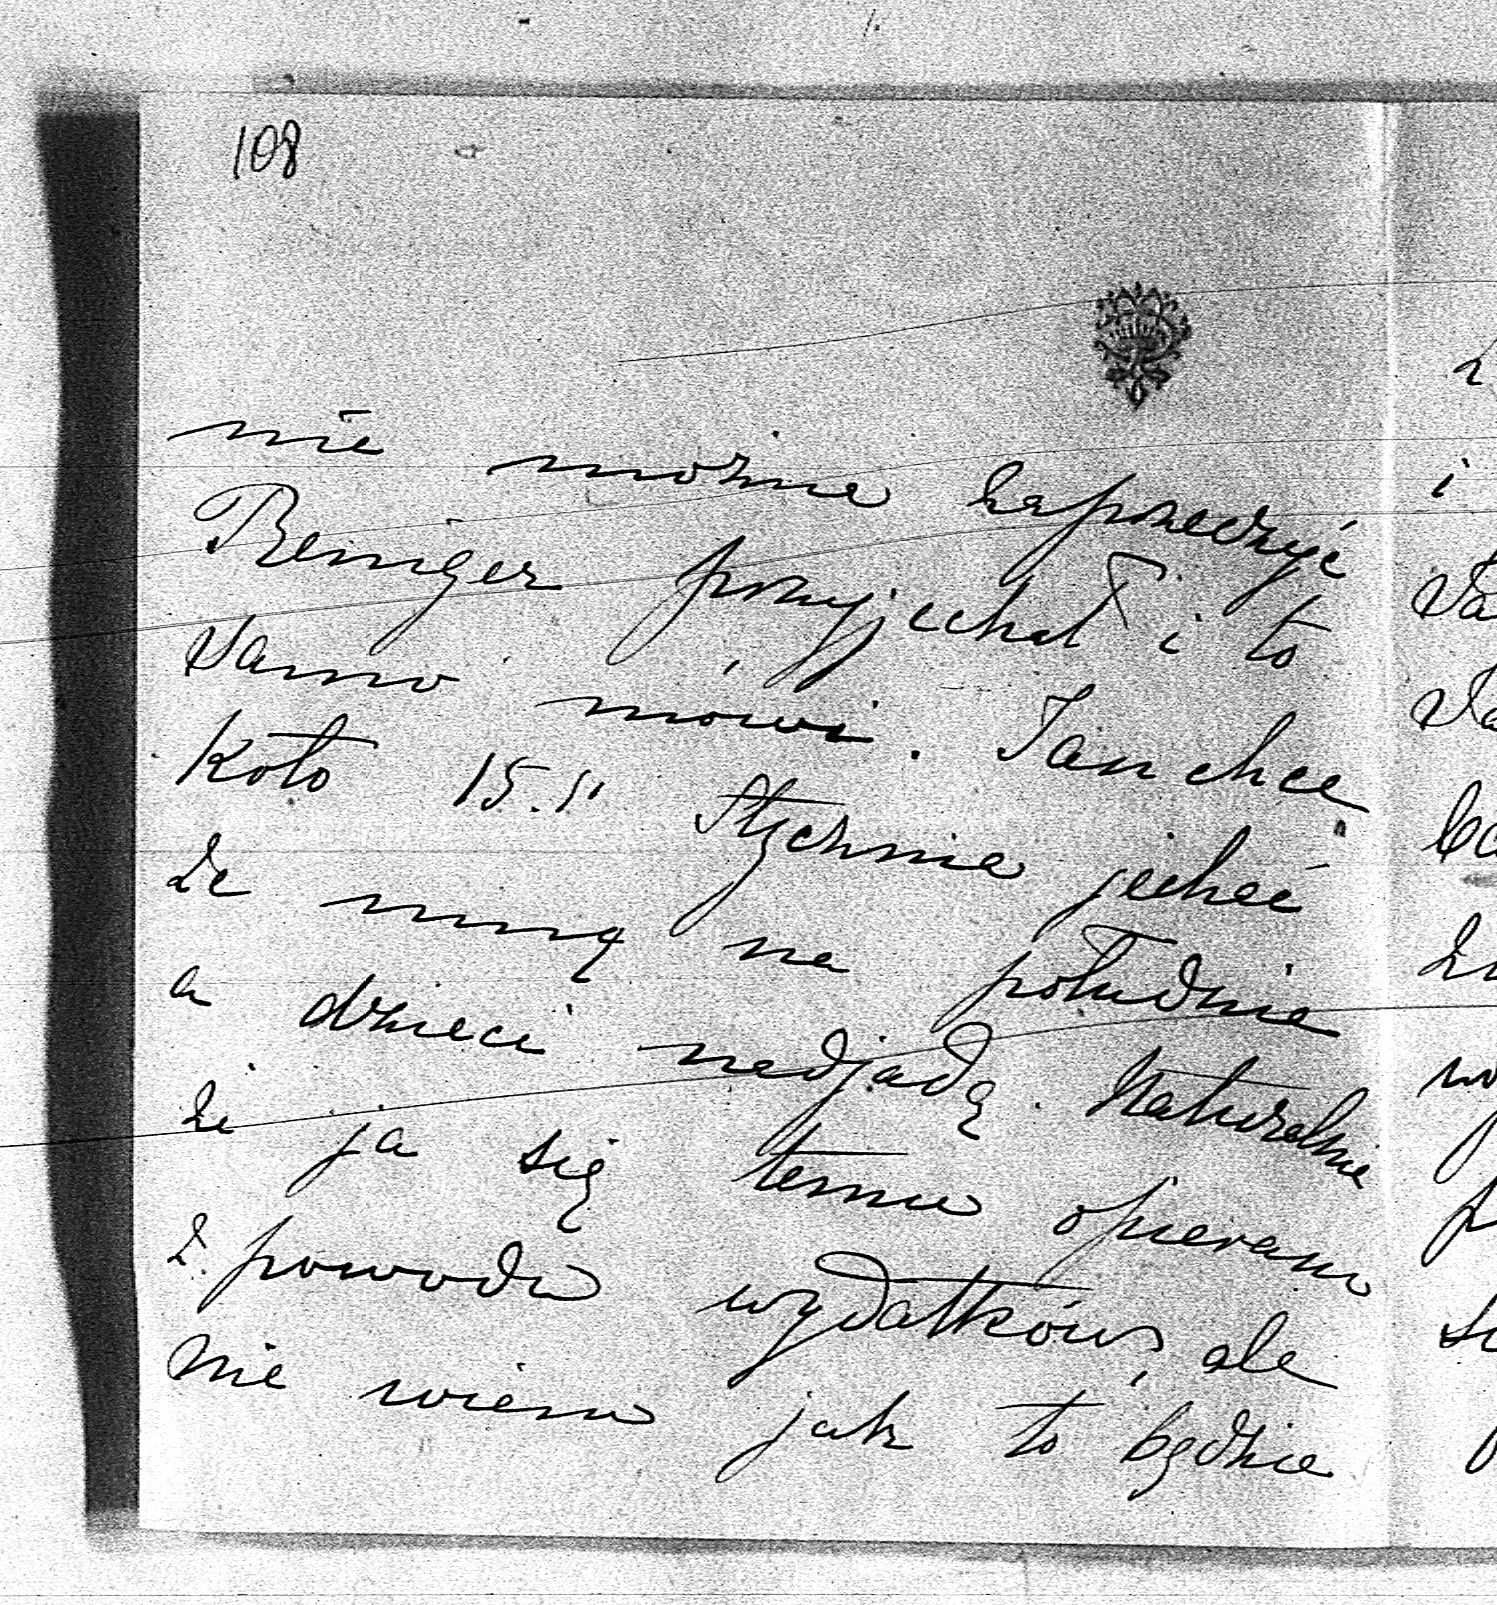 108
nie można zaprzeczyć
Reniger przyjechał i to
samo mówi. Jan chce
koło 15. Stycznia jechać
ze mną na południe
a dzieci nadjadą. Naturalnie
że ja się temu opieram
z powodu wydatków, ale
nie wiem jak to będzie